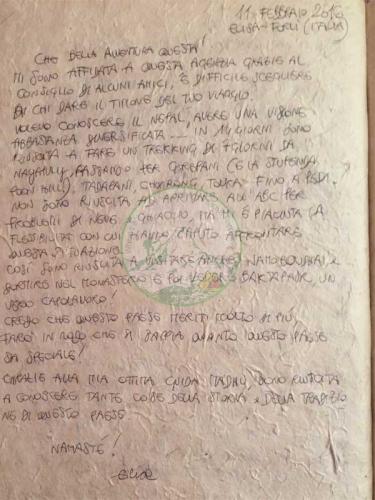 11 FEBBRAIO 2016
ELISA - FORLÌ (ITALIA)
CHE BELLA AVVENTURA QUESTA!
MI SONO AFFIDATA A QUESTA AGENZIA GRAZIE AL
CONSIGLIO DI ALCUNI AMICI, È DIFFICILE SCEGLIERE
DI CHI DARE IL TIMONE DEL TUO VIAGGIO.
VOLEVO CONOSCERE IL NEPAL, AVERE UNA VISIONE
ABBASTANZA DIVERSIFICATA — IN 14 GIORNI SONO
RIUSCITA A FARE UN TREKKING DI 7 GIORNI DA
NAYAPULL, PASSANDO PER GOREPANI (E LA STUPENDA
POON HILL), TADAPANI, CHOMRONG, FINO A
NON SONO RIUSCITA AD ARRIVARE ALL'ABC PER
PROBLEMI DI NEVE E GHIACCIO, MA MI È PIACIUTA LA
FLESSIBILITÀ CON CUI HANNO POTUTO AFFRONTARE
QUESTA SITUAZIONE.
COSÌ SONO RIUSCITA A VISITARE ANCHE NAMOBOUDHA, E
DORMIRE NEL MONASTERO E POI VEDERE BAKTAPUR, UN
VERO CAPOLAVORO!
CREDO CHE QUESTO PAESE MERITI MOLTO DI PIÙ,
FARÒ IN MODO CHE SI SAPPIA QUANTO QUESTO PAESE
SIA SPECIALE!
GRAZIE ALLA MIA OTTIMA GUIDA MADHU, SONO RIUSCITA
A CONOSCERE TANTE COSE DELLA STORIA E DELLA TRADIZIO
NE DI QUESTO PAESE
NAMASTÉ!
ELISA